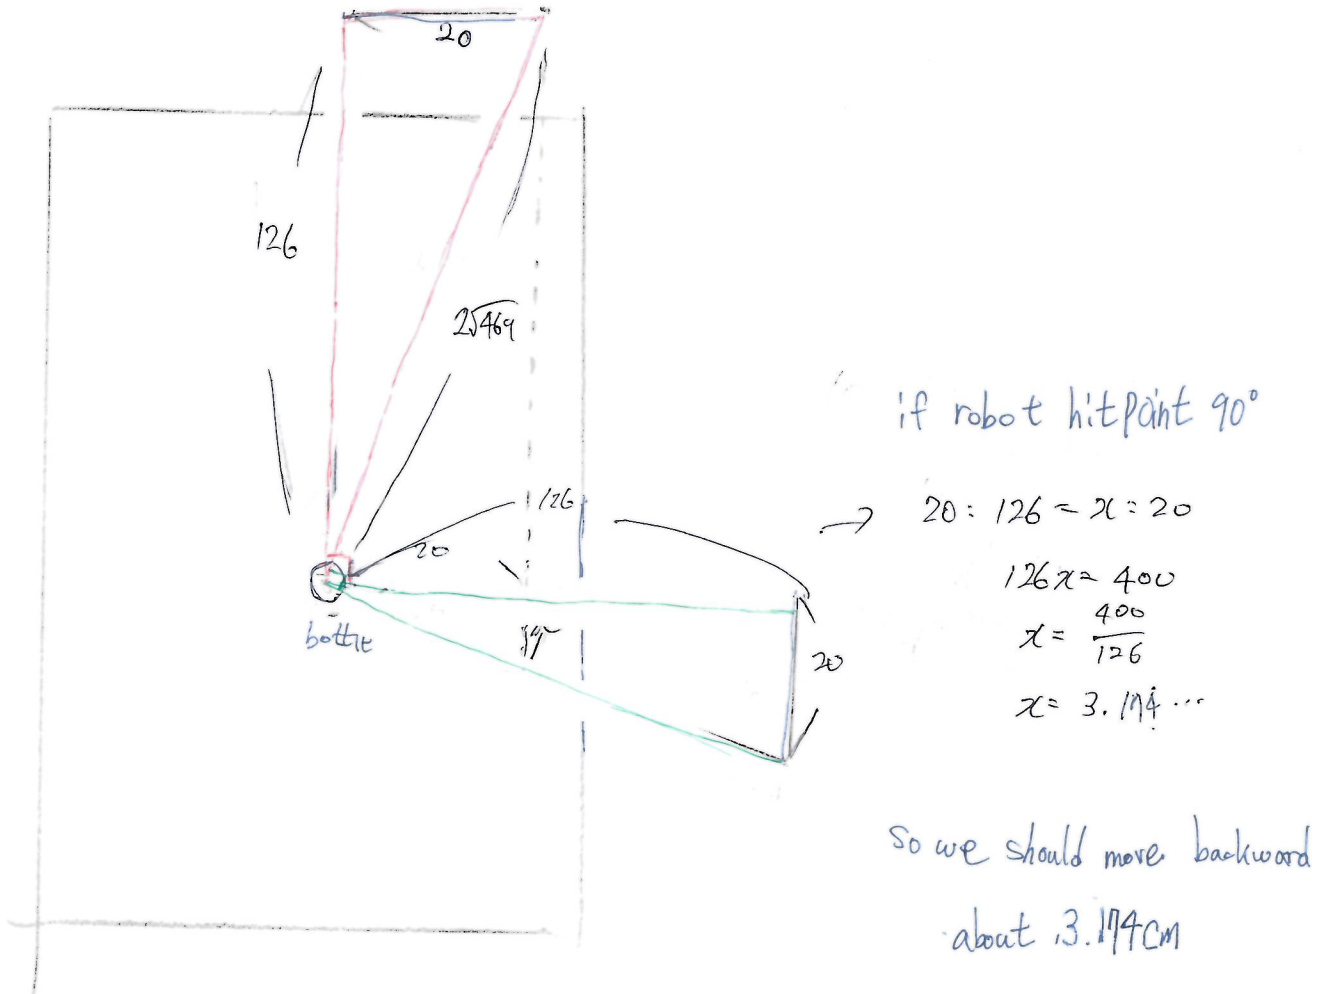 20
126
2√469
126
20
bottle
20
if robot hitpoint 90°
→ 20 : 126 = x : 20
126x = 400
x = 400/126
x = 3.174...
So we should move backward
about 3.174cm